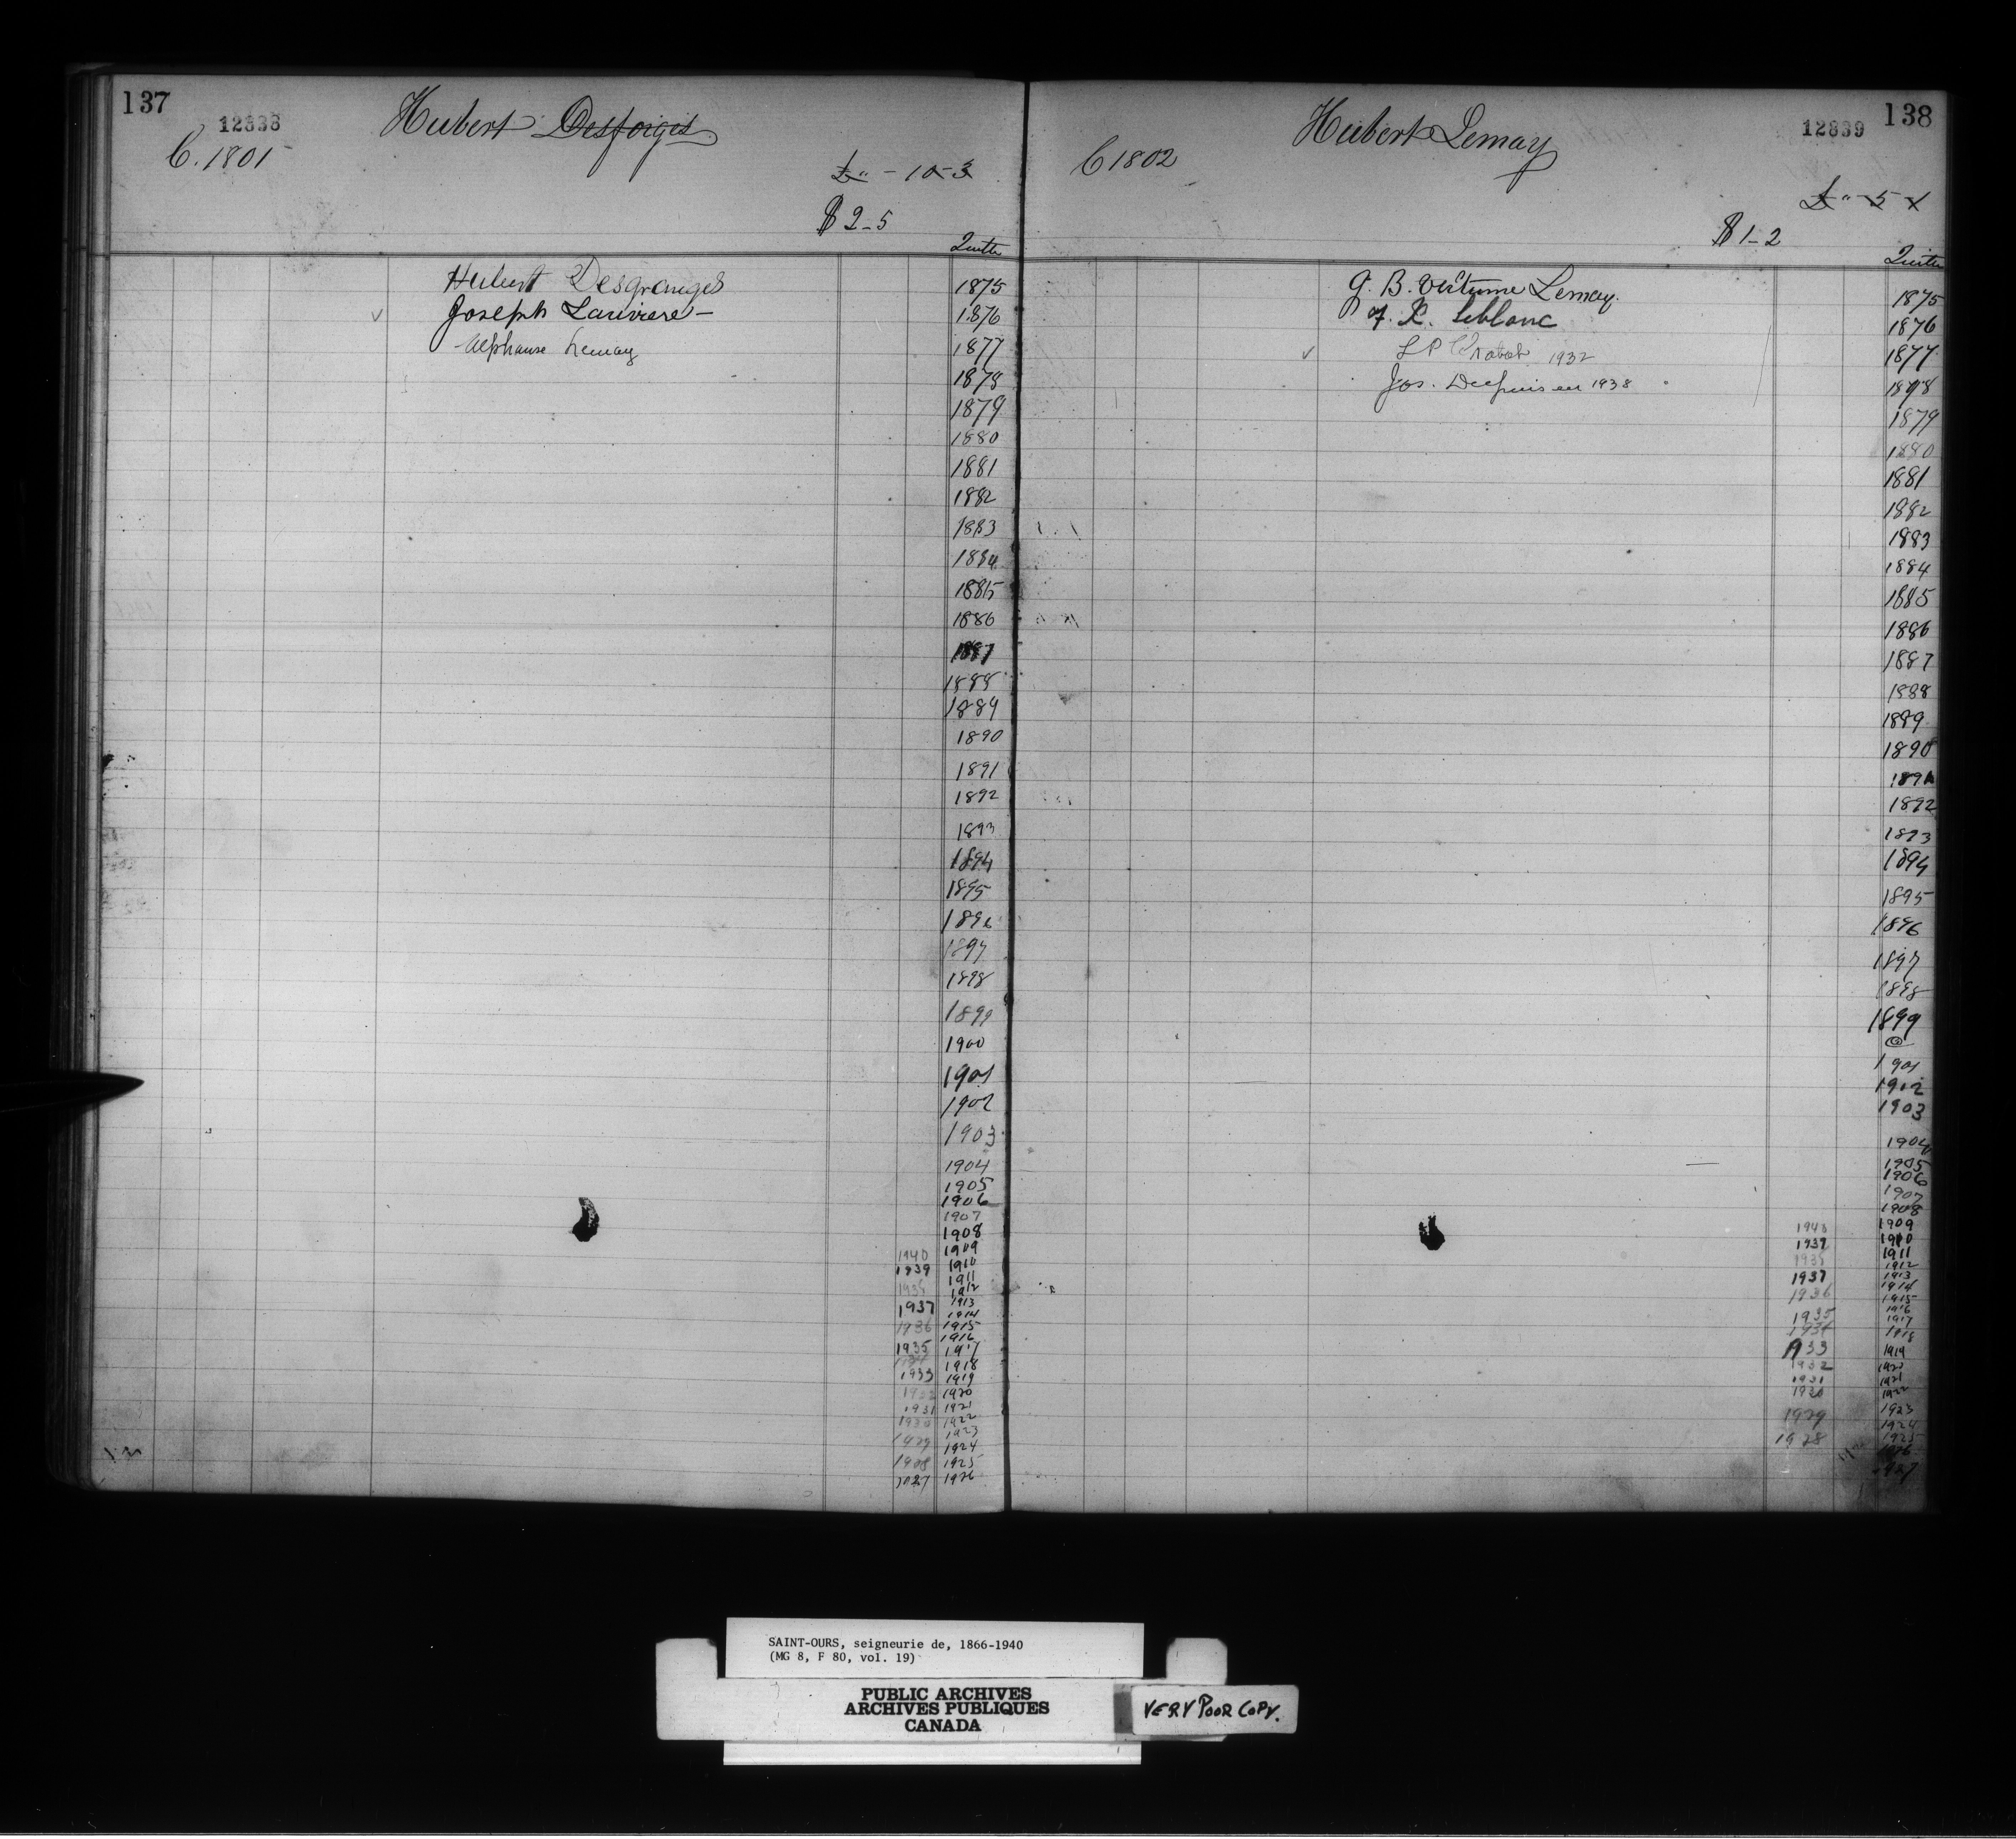 137
12838
Hubert Desforges
C. 1801
£ " - 10 - 3
$ 2-5
Quitte
Hubert Desgranges
1875
Joseph Lariviere -
1876
Alphonse Lemay
1877
1878
1879
1880
1881
1882
1883
1884
1885
1886
1887
1888
1889
1890
1891
1892
1893
1894
1895
1896
1897
1898
1899
1900
1901
1902
1903
1904
1905
1906
1907
1908
1940 1909
1939 1910
1911
1912
1937 1913
1914
1936 1915
1916
1935 1917
1918
1933 1919
1932 1920
1931 1921
1930 1922
1929 1923
1924
1928 1925
1927 1926
138
12839
Hubert Lemay
C 1802
£ " - 5 - 1
$ 1-2
Quitte
1875
F. X. Leblanc
1876
1932
1877
Jos. Dupuis en 1938
1878
1879
1880
1881
1882
1883
1884
1885
1886
1887
1888
1889
1890
1891
1892
1893
1894
1895
1896
1897
1898
1899
1901
1902
1903
1904
1905
1906
1907
1908
1909
1939 1910
1911
1912
1937 1913
1936 1914
1915
1916
1935 1917
1918
1933 1919
1932 1920
1931 1921
1930 1922
1929 1923
1924
1928 1925
1926
1927
SAINT-OURS, seigneurie de, 1866-1940
(MG 8, F 80, vol. 19)
PUBLIC ARCHIVES
ARCHIVES PUBLIQUES
CANADA
VERY POOR COPY.